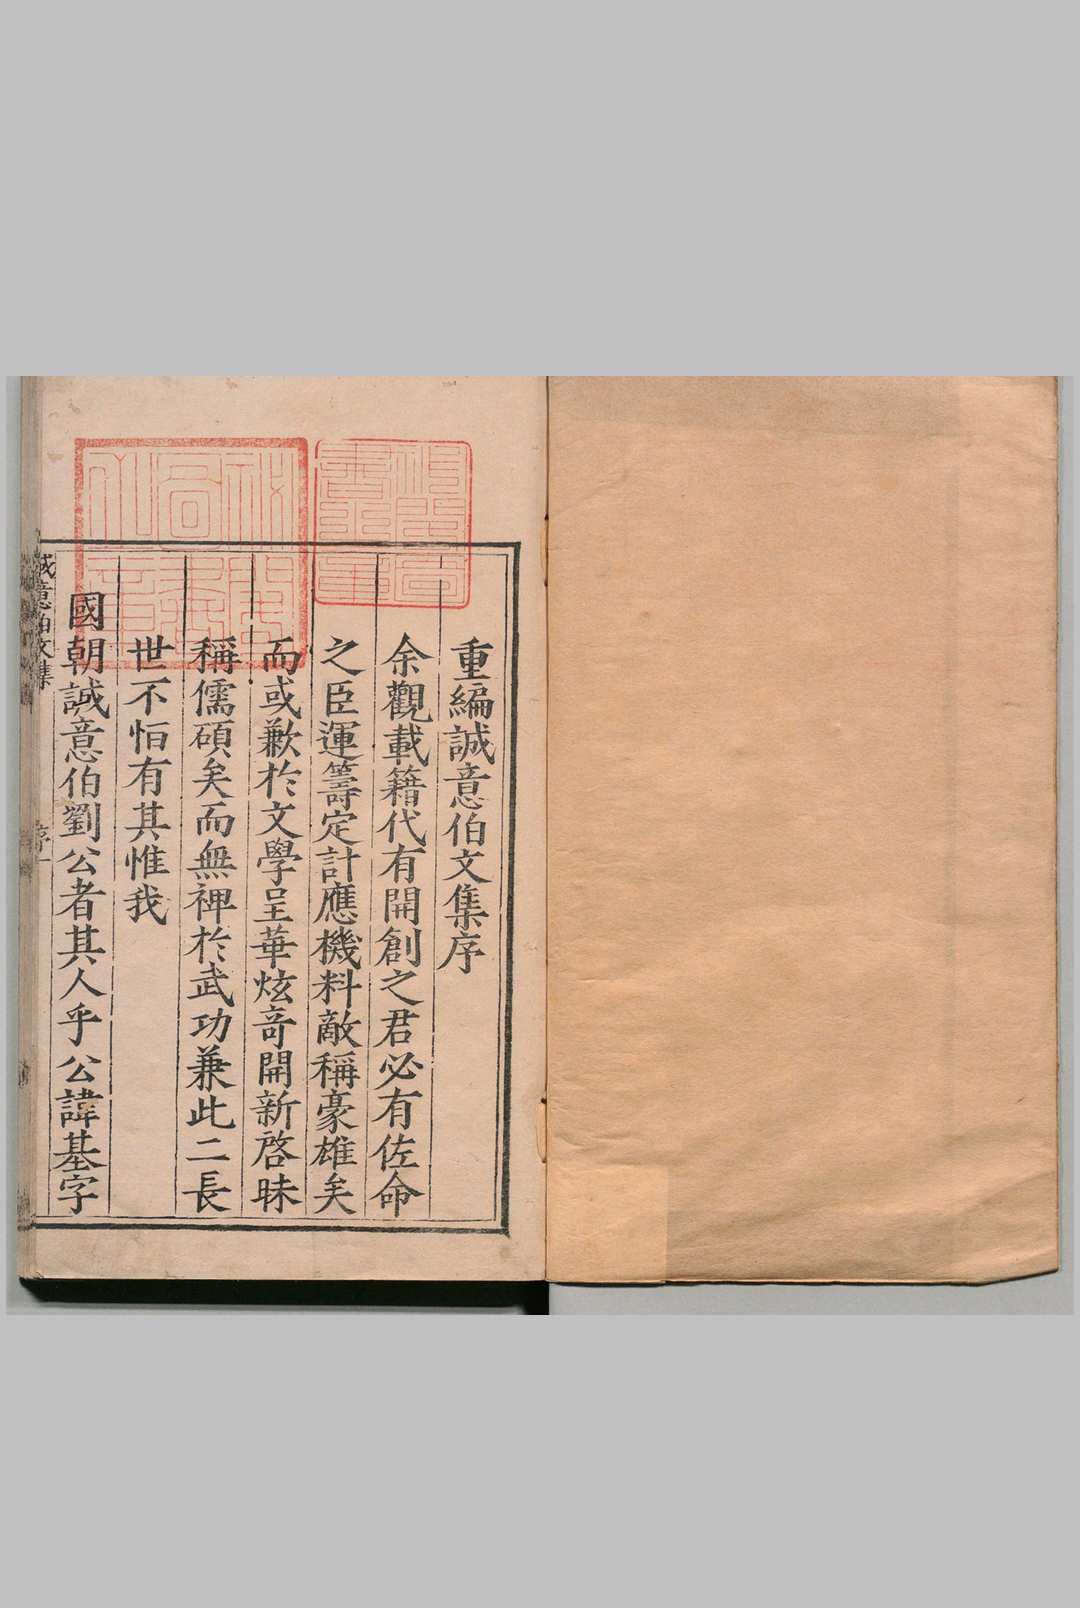 重編誠意伯文集序
余觀載籍代有開創之君必有佐命
之臣運籌定計應機料敵稱豪雄矣
而或歉於文學呈華炫竒開新啓昧
稱儒碩矣而無裨於武功兼此二長
世不恒有其惟我
國朝誠意伯劉公者其人乎公諱基字
誠意伯文集
序一